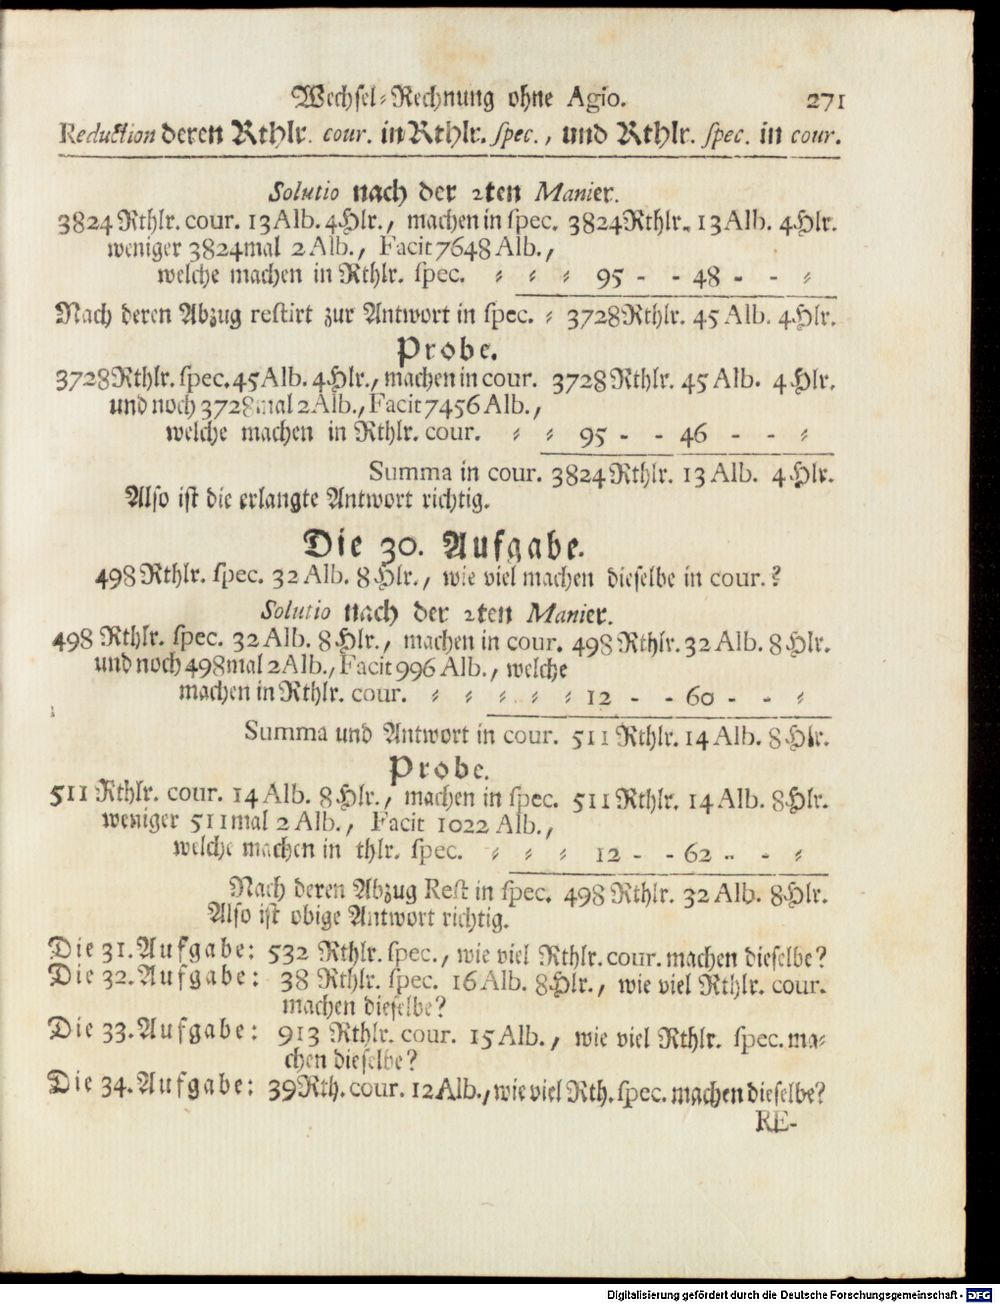 Wechsel-Rechnung ohne Agio. 271
Reduction deren Rthlr. cour. in Rthlr. spec., und Rthlr. spec. in cour.
Solutio nach der 2ten Manier.
3824 Rthlr. cour. 13 Alb. 4 Hlr., machen in spec. 3824 Rthlr. 13 Alb. 4 Hlr.
weniger 3824mal 2 Alb., Facit 7648 Alb.,
welche machen in Rthlr. spec. ⸗ ⸗ ⸗ 95 - - 48 - - ⸗
Nach deren Abzug restirt zur Antwort in spec. ⸗ 3728 Rthlr. 45 Alb. 4 Hlr.
Probe.
3728 Rthlr. spec. 45 Alb. 4 Hlr., machen in cour. 3728 Rthlr. 45 Alb. 4 Hlr.
und noch 3728mal 2 Alb., Facit 7456 Alb.,
welche machen in Rthlr. cour. ⸗ ⸗ 95 - - 46 - - ⸗
Summa in cour. 3824 Rthlr. 13 Alb. 4 Hlr.
Also ist die erlangte Antwort richtig.
Die 30. Aufgabe.
498 Rthlr. spec. 32 Alb. 8 Hlr., wie viel machen dieselbe in cour.?
Solutio nach der 2ten Manier.
498 Rthlr. spec. 32 Alb. 8 Hlr., machen in cour. 498 Rthlr. 32 Alb. 8 Hlr.
und noch 498mal 2 Alb., Facit 996 Alb., welche
machen in Rthlr. cour. ⸗ ⸗ ⸗ ⸗ ⸗ 12 - - 60 - - ⸗
Summa und Antwort in cour. 511 Rthlr. 14 Alb. 8 Hlr.
Probe.
511 Rthlr. cour. 14 Alb. 8 Hlr., machen in spec. 511 Rthlr. 14 Alb. 8 Hlr.
weniger 511mal 2 Alb., Facit 1022 Alb.,
welche machen in thlr. spec. ⸗ ⸗ ⸗ 12 - - 62 - - ⸗
Nach deren Abzug Rest in spec. 498 Rthlr. 32 Alb. 8 Hlr.
Also ist obige Antwort richtig.
Die 31. Aufgabe: 532 Rthlr. spec., wie viel Rthlr. cour. machen dieselbe?
Die 32. Aufgabe: 38 Rthlr. spec. 16 Alb. 8 Hlr., wie viel Rthlr. cour.
machen dieselbe?
Die 33. Aufgabe: 913 Rthlr. cour. 15 Alb., wie viel Rthlr. spec. ma⸗
chen dieselbe?
Die 34. Aufgabe: 39 Rth. cour. 12 Alb., wie viel Rth. spec. machen dieselbe?
RE-
Digitalisierung gefördert durch die Deutsche Forschungsgemeinschaft - DFG